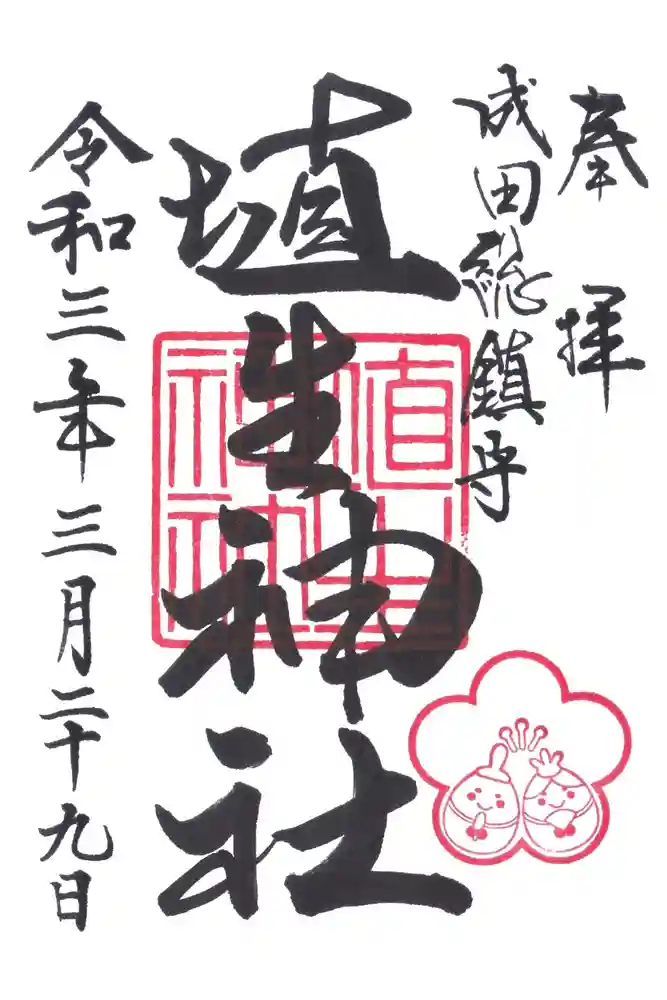 奉拝
成田総鎮守
埴生神社
埴生神社
令和三年三月二十九日